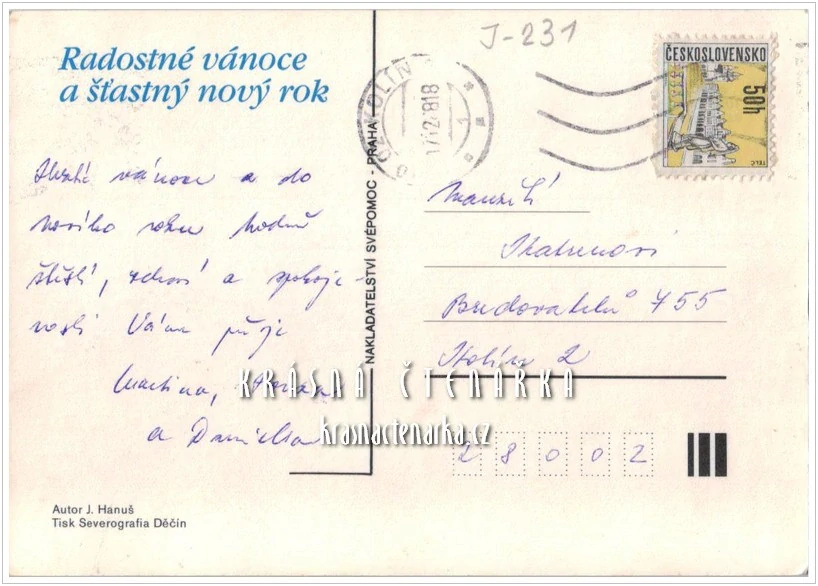 Radostné vánoce
a šťastný nový rok
J-231
KOLÍN 1
17.12.81 8
ČESKOSLOVENSKO
50h
TELČ
vánoce a do
nového roku hodně
štěstí, zdraví a spokoje-
nosti Vám přeje
Martina,
a Daniela
NAKLADATELSTVÍ SVÉPOMOC - PRAHA
Manželé
Budovatelů 755
Kolín 2
28002
KRÁSNÁ ČTENÁRKA
krasnactenarka.cz
Autor J. Hanuš
Tisk Severografia Děčín